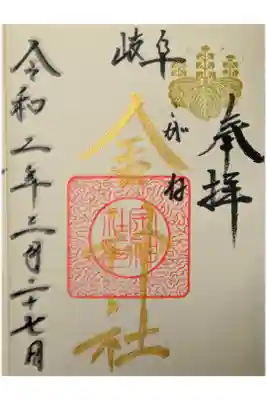 奉拝
岐阜
金神社
令和二年三月二十七日